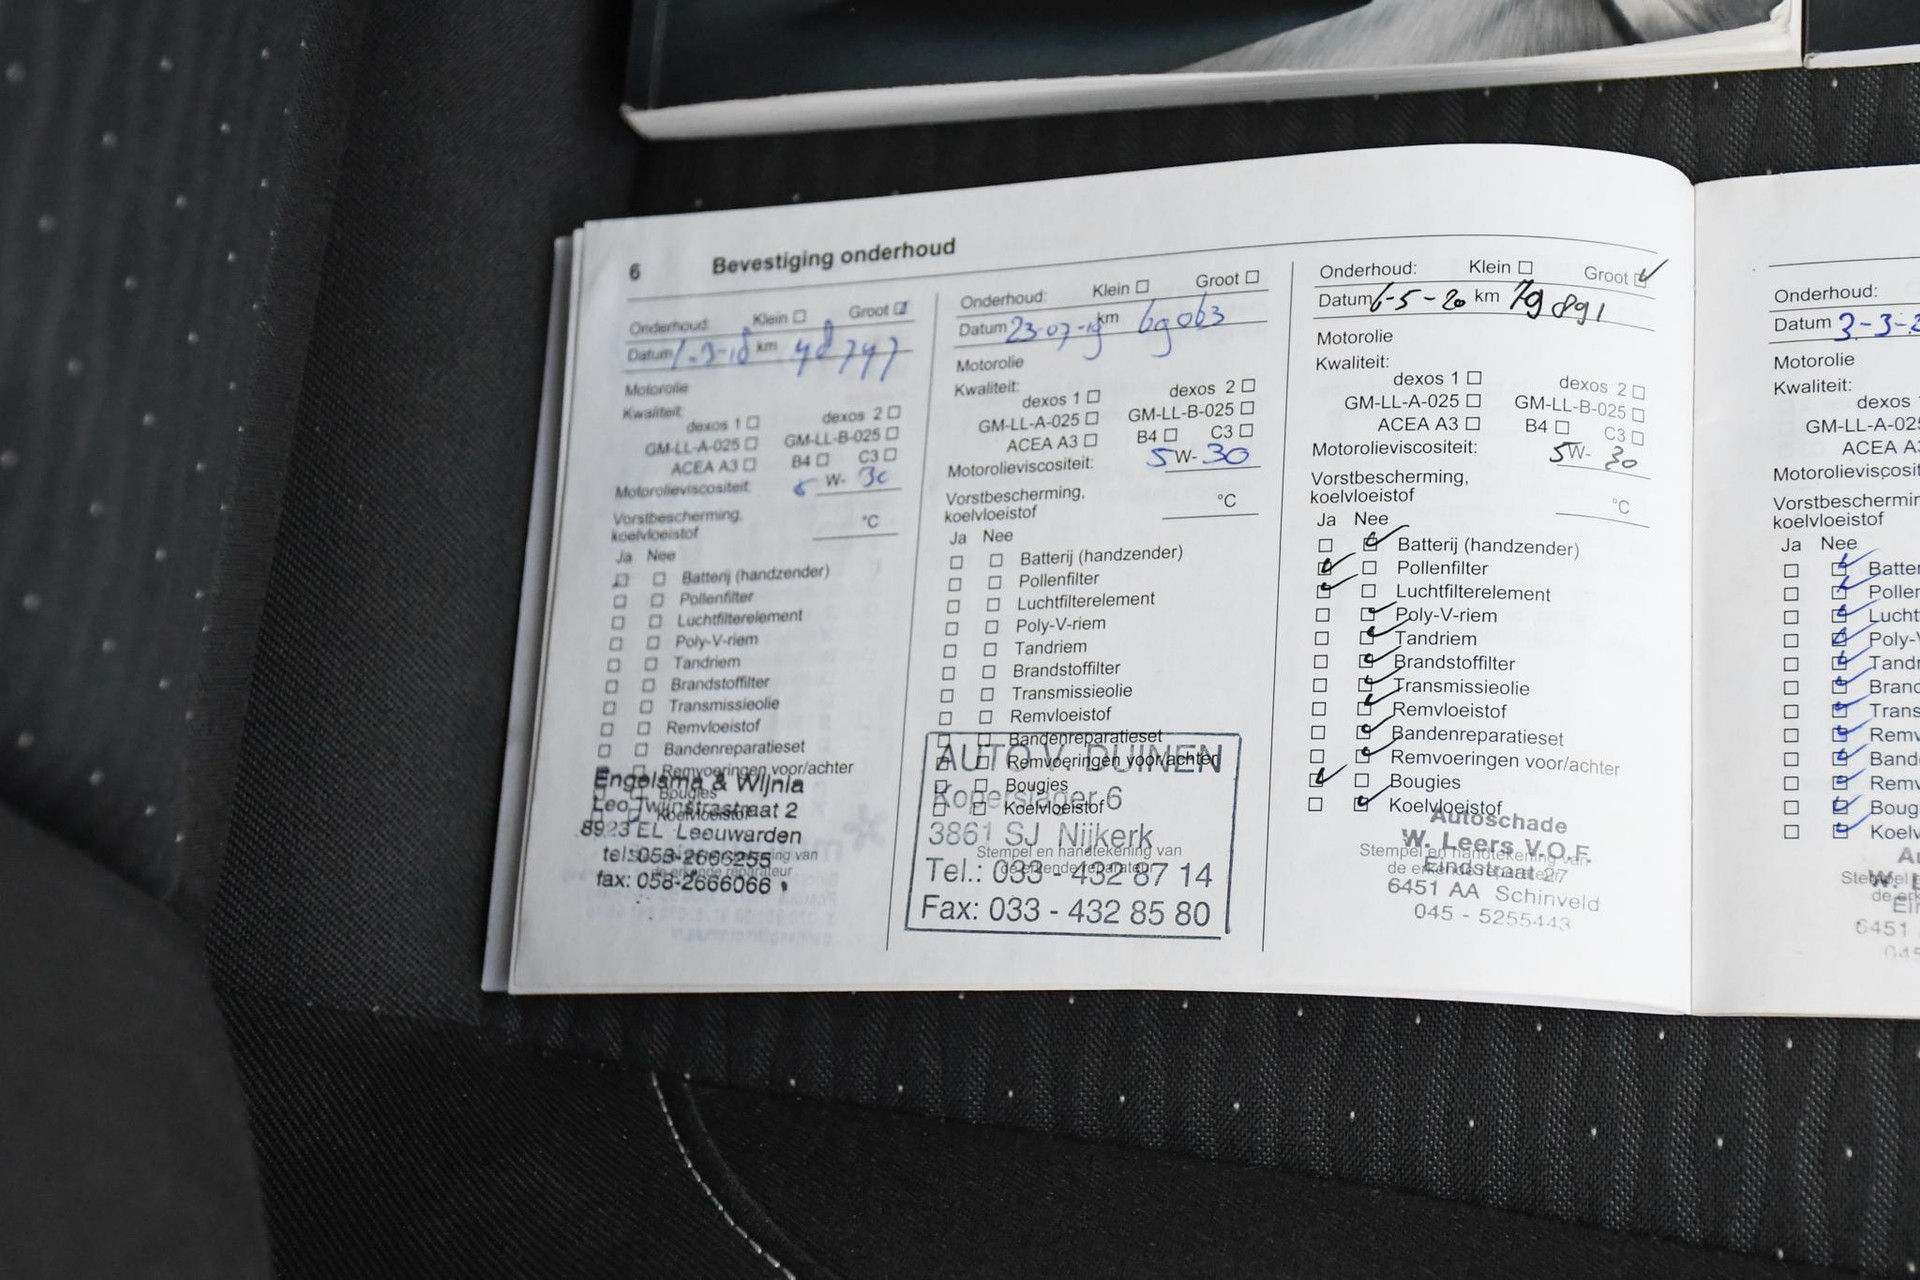 6 Bevestiging onderhoud
Onderhoud: Klein Groot
Datum 1-3-18 km 48747
Motorolie
Kwaliteit:
dexos 1 dexos 2
GM-LL-A-025 GM-LL-B-025
ACEA A3 B4 C3
Motorolieviscositeit: 5 W- 30
Vorstbescherming,
koelvloeistof °C
Ja Nee
Batterij (handzender)
Pollenfilter
Luchtfilterelement
Poly-V-riem
Tandriem
Brandstoffilter
Transmissieolie
Remvloeistof
Bandenreparatieset
Remvoeringen voor/achter
Bougies
Koelvloeistof
Engelsma & Wijnia
Leo Twijnstrastraat 2
8923 EL Leeuwarden
tel:058-2666255
fax: 058-2666066
Onderhoud: Klein Groot
Datum 23-07-19 km 69063
Motorolie
Kwaliteit:
dexos 1 dexos 2
GM-LL-A-025 GM-LL-B-025
ACEA A3 B4 C3
Motorolieviscositeit: 5 W- 30
Vorstbescherming,
koelvloeistof °C
Ja Nee
Batterij (handzender)
Pollenfilter
Luchtfilterelement
Poly-V-riem
Tandriem
Brandstoffilter
Transmissieolie
Remvloeistof
Bandenreparatieset
Remvoeringen voor/achter
Bougies
Koelvloeistof
Stempel en handtekening van
de erkende reparateur
AUTO V. DUINEN
Koperslager 6
3861 SJ Nijkerk
Tel.: 033 - 432 87 14
Fax: 033 - 432 85 80
Onderhoud: Klein Groot
Datum 6-5-20 km 79891
Motorolie
Kwaliteit:
dexos 1 dexos 2
GM-LL-A-025 GM-LL-B-025
ACEA A3 B4 C3
Motorolieviscositeit: 5 W- 30
Vorstbescherming,
koelvloeistof °C
Ja Nee
Batterij (handzender)
Pollenfilter
Luchtfilterelement
Poly-V-riem
Tandriem
Brandstoffilter
Transmissieolie
Remvloeistof
Bandenreparatieset
Remvoeringen voor/achter
Bougies
Koelvloeistof
Stempel en handtekening van
de erkende reparateur
Autoschade
W. Leers V.O.F.
Eindstraat 27
6451 AA Schinveld
045 - 5255443
Onderhoud:
Datum 3-3-2
Motorolie
Kwaliteit:
dexos
GM-LL-A-02
ACEA A3
Motorolieviscosit
Vorstbeschermin
koelvloeistof
Ja Nee
Batter
Pollen
Lucht
Poly-V
Tandr
Brand
Trans
Remv
Band
Remv
Boug
Koelv
Stempel
6451